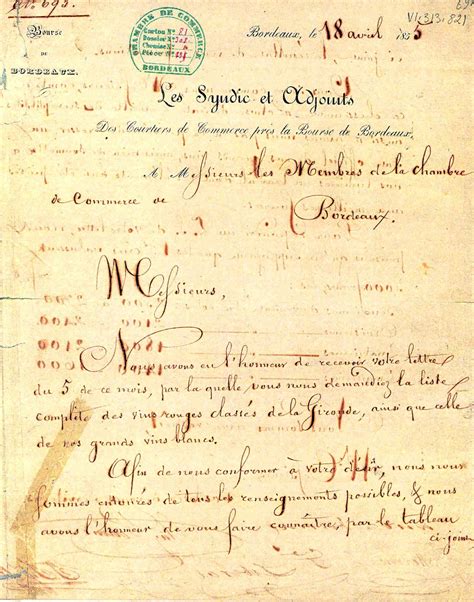 N° 693.
Bourse
DE
BORDEAUX.
CHAMBRE DE COMMERCE
Carton N° 21
Dossier N°
Chemise N°
Pièce N°
BORDEAUX
Bordeaux, le 18 avril 1855
Les Syndic et Adjoints
Des Courtiers de Commerce près la Bourse de Bordeaux,
A Messieurs les Membres de la chambre
de Commerce de
Bordeaux.
Messieurs,
Nous avons eu l'honneur de recevoir votre lettre
du 5 de ce mois, par laquelle vous nous demandiez la liste
complète des vins rouges classés de la Gironde, ainsi que celle
de nos grands vins blancs.
Afin de nous conformer à votre désir, nous nous
sommes entourés de tous les renseignements possibles, & nous
avons l'honneur de vous faire connaître, par le tableau
ci-joint